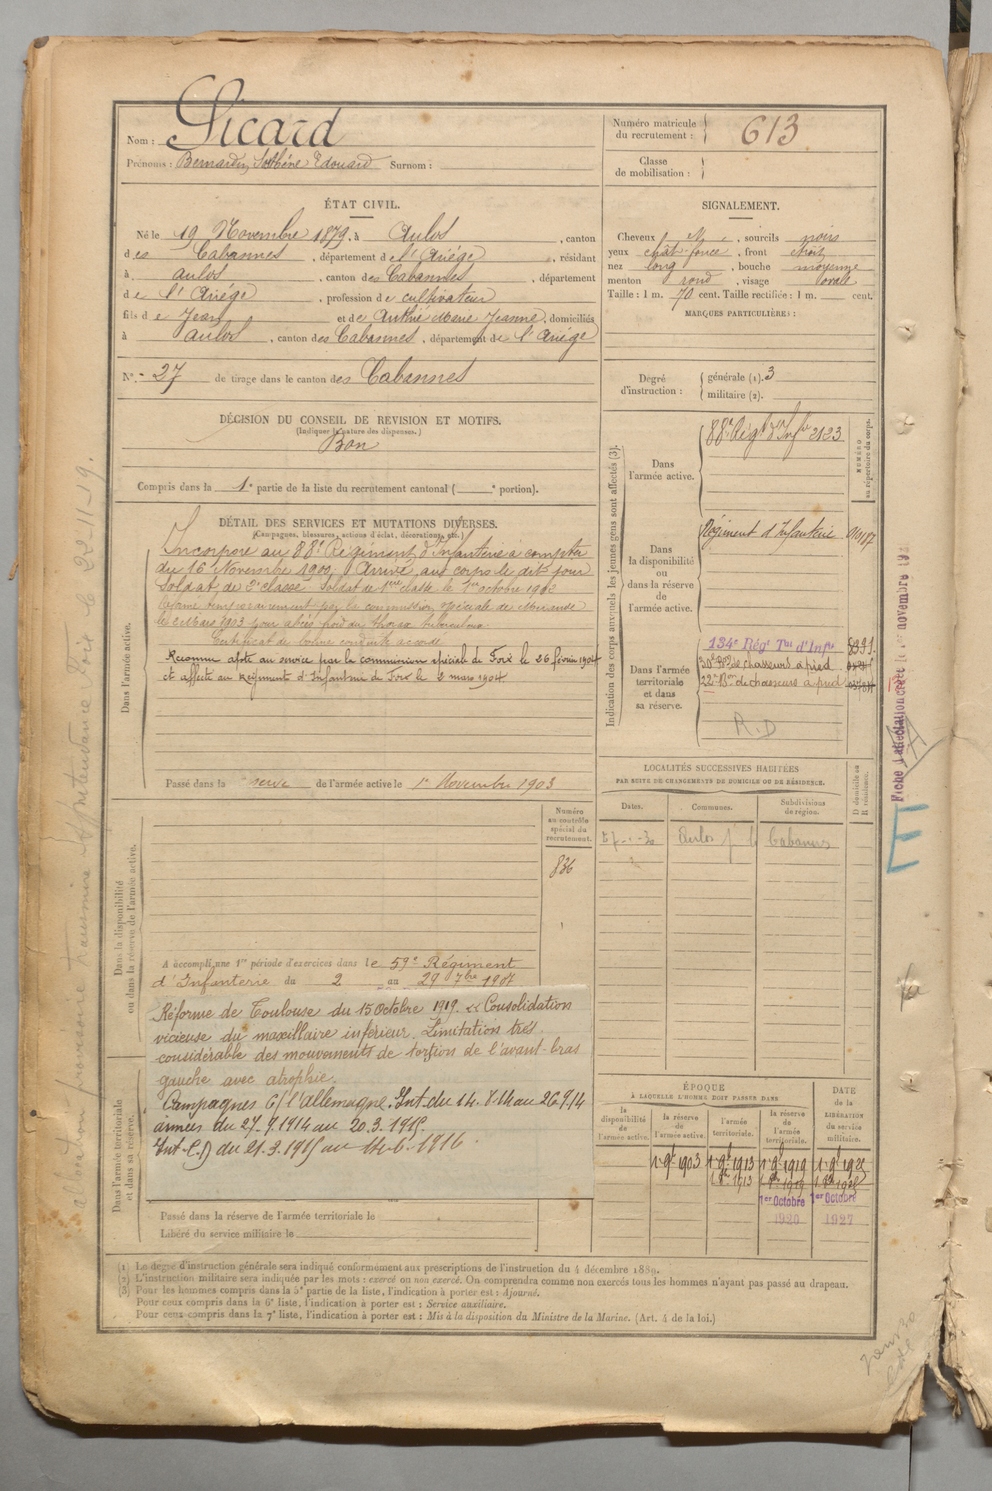 Nom : Sicard
Prénoms : Bernardin, Sosthène Édouard Surnom :
Numéro matricule
du recrutement : 613
Classe
de mobilisation :
ÉTAT CIVIL.
Né le 19 Novembre 1879, à Aulos, canton
des Cabannes, département de l'Ariége, résidant
à Aulos, canton des Cabannes, département
de l'Ariége, profession de cultivateur
fils de Jean et de Authié Marie Jeanne, domiciliés
à Aulos, canton des Cabannes, département de l'Ariége
N° 27 de tirage dans le canton des Cabannes
SIGNALEMENT.
Cheveux et, sourcils noirs
yeux chât. foncé, front étroit
nez long, bouche moyenne
menton rond, visage ovale
Taille : 1 m. 70 cent. Taille rectifiée : 1 m. cent.
MARQUES PARTICULIÈRES :
Degré
d'instruction :
générale (1). 3
militaire (2).
DÉCISION DU CONSEIL DE REVISION ET MOTIFS.
(Indiquer la nature des dispenses.)
Bon
Compris dans la 1e partie de la liste du recrutement cantonal ( e portion).
DÉTAIL DES SERVICES ET MUTATIONS DIVERSES.
(Campagnes, blessures, actions d'éclat, décorations, etc.)
Dans l'armée active.
Incorporé au 88e Régiment d'Infanterie à compter
du 16 Novembre 1900, Arrivé au corps le dit jour
Soldat de 2e classe. Soldat de 1ère classe le 1er octobre 1902
Réformé temporairement par la commission spéciale de Mirande
le 2 Mars 1903 pour abcès froid du thorax tuberculeux
Certificat de bonne conduite accordé
Reconnu apte au service par la commission spéciale de Foix le 26 février 1904
et affecté au Régiment d'Infanterie de Foix le 2 mars 1904
Passé dans la réserve de l'armée active le 1er Novembre 1903
Indication des corps auxquels les jeunes gens sont affectés (3).
NUMÉRO
au répertoire du corps.
Dans
l'armée active.
88e Régt d'Infie 3123
Dans
la disponibilité
ou
dans la réserve
de
l'armée active.
Régiment d'Infanterie
Dans l'armée
territoriale
et dans
sa réserve.
134e Régt Tal d'Infie
30e Bon de chasseurs à pied
22e Bon de chasseurs à pied
R.D
LOCALITÉS SUCCESSIVES HABITÉES
PAR SUITE DE CHANGEMENTS DE DOMICILE OU DE RÉSIDENCE.
D domicile ou
R résidence.
Dates.
Communes.
Subdivisions
de région.
Aulos
Cabannes
Dans la disponibilité
ou dans la réserve de l'armée active.
Numéro
au contrôle
spécial du
recrutement.
836
A accompli une 1re période d'exercices dans le 59e Régiment
d'Infanterie du 2 au 29 7bre 1907
Réforme de Toulouse du 15 octobre 1919. « Consolidation
vicieuse du maxillaire inférieur. Limitation très
considérable des mouvements de torsion de l'avant-bras
gauche avec atrophie.
Campagnes c/ l'Allemagne. Int. du 14.8.14 au 26.9.14
armées du 27.9.1914 au 20.3.1915.
Int. C.) du 21.3.1915 au 14.6.1916.
Dans l'armée territoriale
et dans sa réserve.
Passé dans la réserve de l'armée territoriale le
Libéré du service militaire le
ÉPOQUE
À LAQUELLE L'HOMME DOIT PASSER DANS
DATE
de la
LIBÉRATION
du service
militaire.
la
disponibilité
de
l'armée active.
la réserve
de
l'armée active.
l'armée
territoriale.
la réserve
de
l'armée
territoriale.
1er 9bre 1903 1er 9bre 1913 1er 9bre 1919
1er Octobre
1920
1er Octobre
1927
(1) Le degré d'instruction générale sera indiqué conformément aux prescriptions de l'instruction du 4 décembre 1889.
(2) L'instruction militaire sera indiquée par les mots : exercé ou non exercé. On comprendra comme non exercés tous les hommes n'ayant pas passé au drapeau.
(3) Pour les hommes compris dans la 5e partie de la liste, l'indication à porter est : Ajourné.
Pour ceux compris dans la 6e liste, l'indication à porter est : Service auxiliaire.
Pour ceux compris dans la 7e liste, l'indication à porter est : Mis à la disposition du Ministre de la Marine. (Art. 4 de la loi.)
E